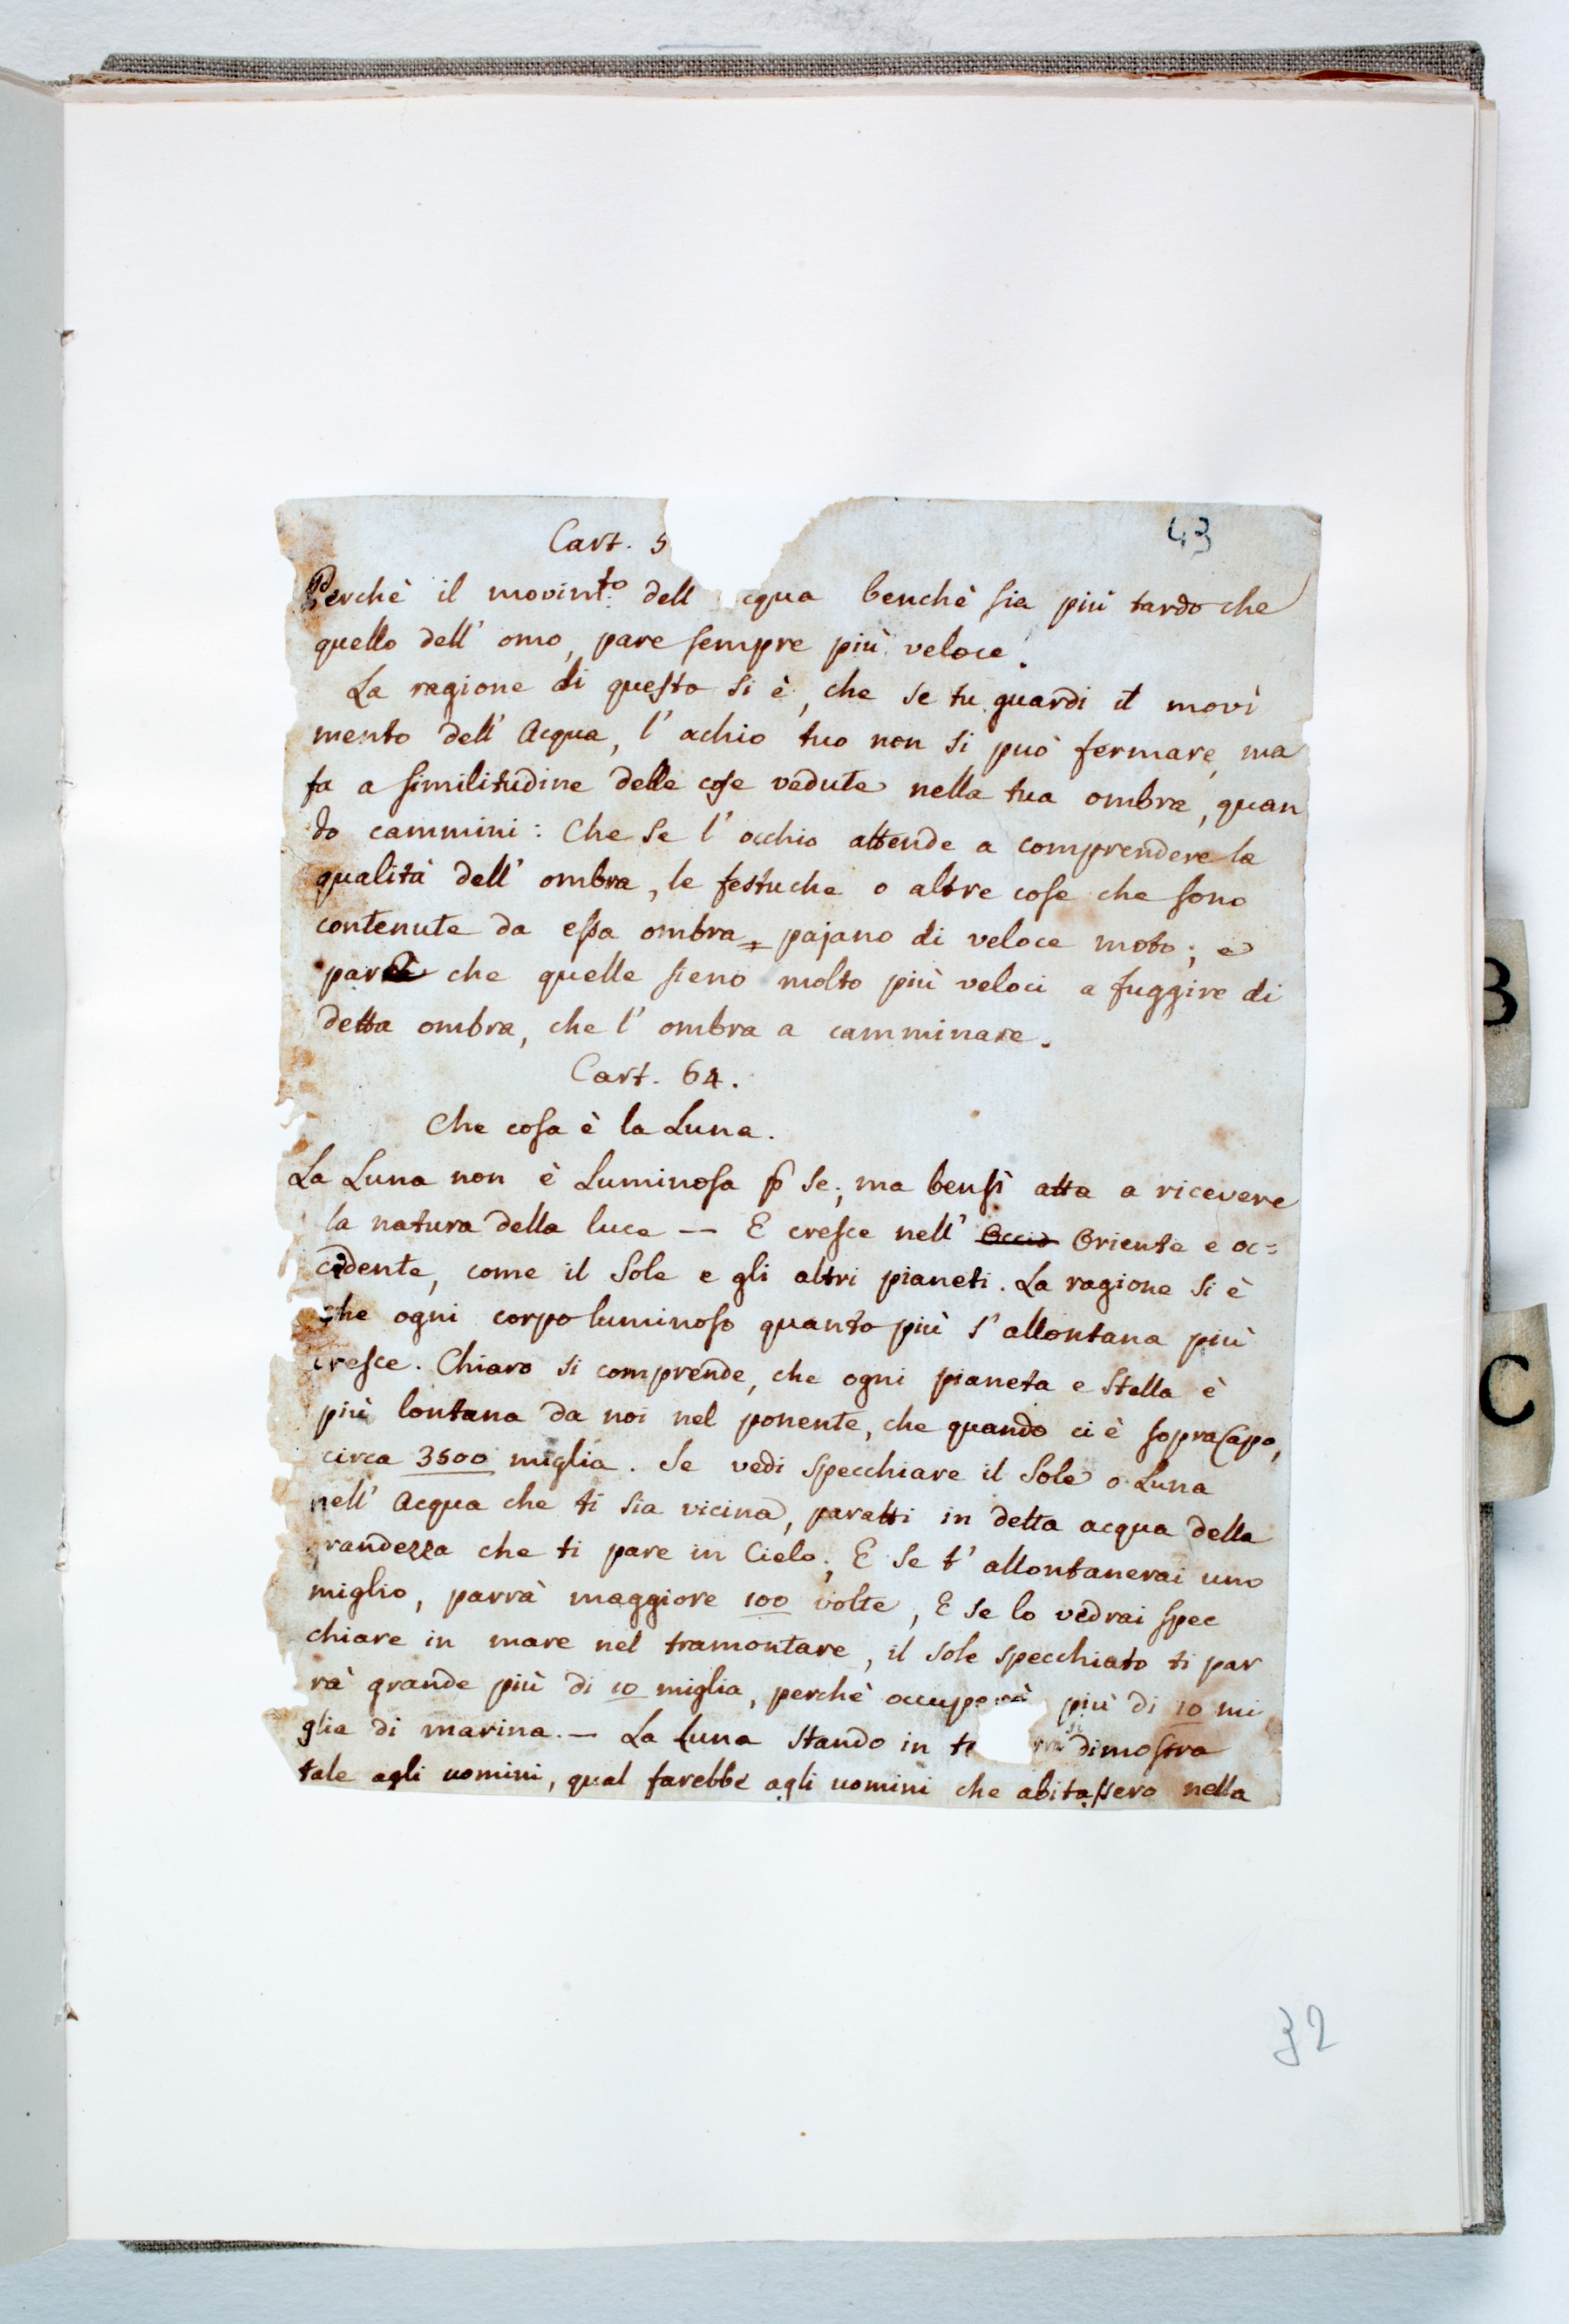 Cart. 5
43
Perchè il movim.to dell cqua benchè sia più tardo che
quello dell' omo, pare sempre più veloce.
La ragione di questo si è, che se tu guardi il movi
mento dell' Acqua, l' ochio tuo non si può fermare, ma
fa a similitudine delle cose vedute nella tua ombra, quan
do cammini: Che se l' occhio attende a comprendere la
qualità dell' ombra, le festuche o altre cose che sono
contenute da essa ombra pajano di veloce moto; e
che quelle sieno molto più veloci a fuggire di
detta ombra, che l' ombra a camminare.
Cart. 64.
Che cosa è la Luna.
La Luna non è Luminosa p se, ma bensì atta a ricevere
la natura della luce — E cresce nell' Occid Oriente e oc=
cidente, come il Sole e gli altri pianeti. La ragione si è
che ogni corpo luminoso quanto più s' allontana più
cresce. Chiaro si comprende, che ogni pianeta e Stella è
più lontana da noi nel ponente, che quando ci è sopra Capo,
circa 3500 miglia. Se vedi specchiare il Sole o Luna
nell' Acqua che ti sia vicina, paratti in detta acqua della
randezza che ti pare in Cielo; E se t' allontanerai uno
miglio, parrà maggiore 100 volte, E se lo vedrai spec
chiare in mare nel tramontare, il sole specchiato ti par
rà grande più di 10 miglia, perchè occuperà più di 10 mi
glia di marina. — La Luna Stando in te rra si dimostra
tale agli uomini, qual farebbe agli uomini che abitassero nella
32
B
C